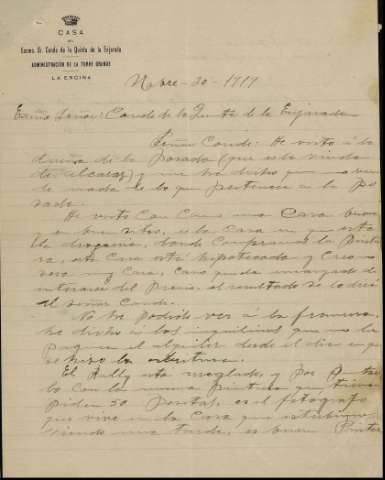 CASA
DEL
Excmo. Sr. Conde de la Quinta de la Enjarada
ADMINISTRACIÓN DE LA TORRE GRANDE
LA ENCINA
Nbre - 30 - 1919
Excmo Señor: Conde de la Quinta de la Enjarada
Señor Conde: He visto á la
dueña de la Posada (que es la viuda
de Alcalaz) y me ha dicho que no ven
de nada de lo que pertenece a la Po
sada.
He visto Con Cruz una Casa buena
y en buen sitio, es la Casa en que esta
la drogueria, donde Compramos la Pintu
ra, esta Casa está hipotecada y Creo no
sera muy Cara, Cano queda encargado de
enterarse del Precio, el resultado se lo diré
al señor Conde.
No he podido ver á la
he dicho á los inquilinos que no la
paguen el alquiler desde el dia en que
se hizo la escritura.
El Rally esta arreglado, y por
lo con la misma pintura que tiene
piden 50 Pesetas, es el fotógrafo
que vive en la Casa que estubimos
viendo una tarde, es buen Pintor